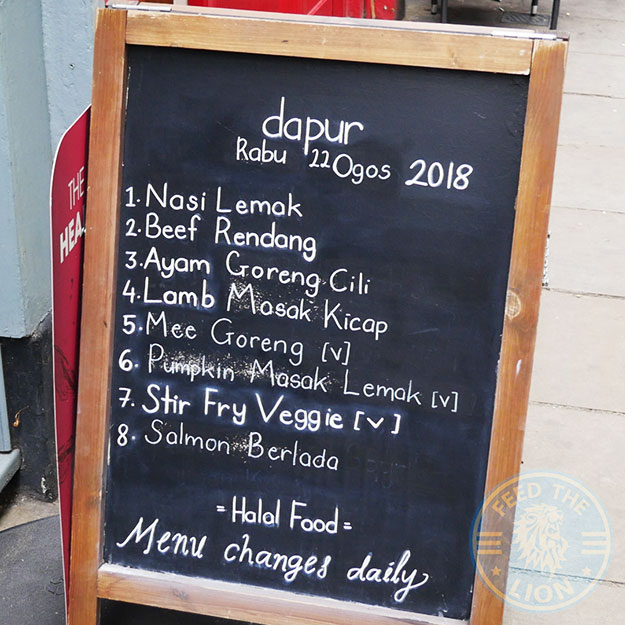 dapur
Rabu 22 Ogos 2018
1. Nasi Lemak
2. Beef Rendang
3. Ayam Goreng Cili
4. Lamb Masak Kicap
5. Mee Goreng [v]
6. Pumpkin Masak Lemak [v]
7. Stir Fry Veggie [v]
8. Salmon Berlada
= Halal Food =
Menu changes daily
THE
HEA
FEED THE
LION